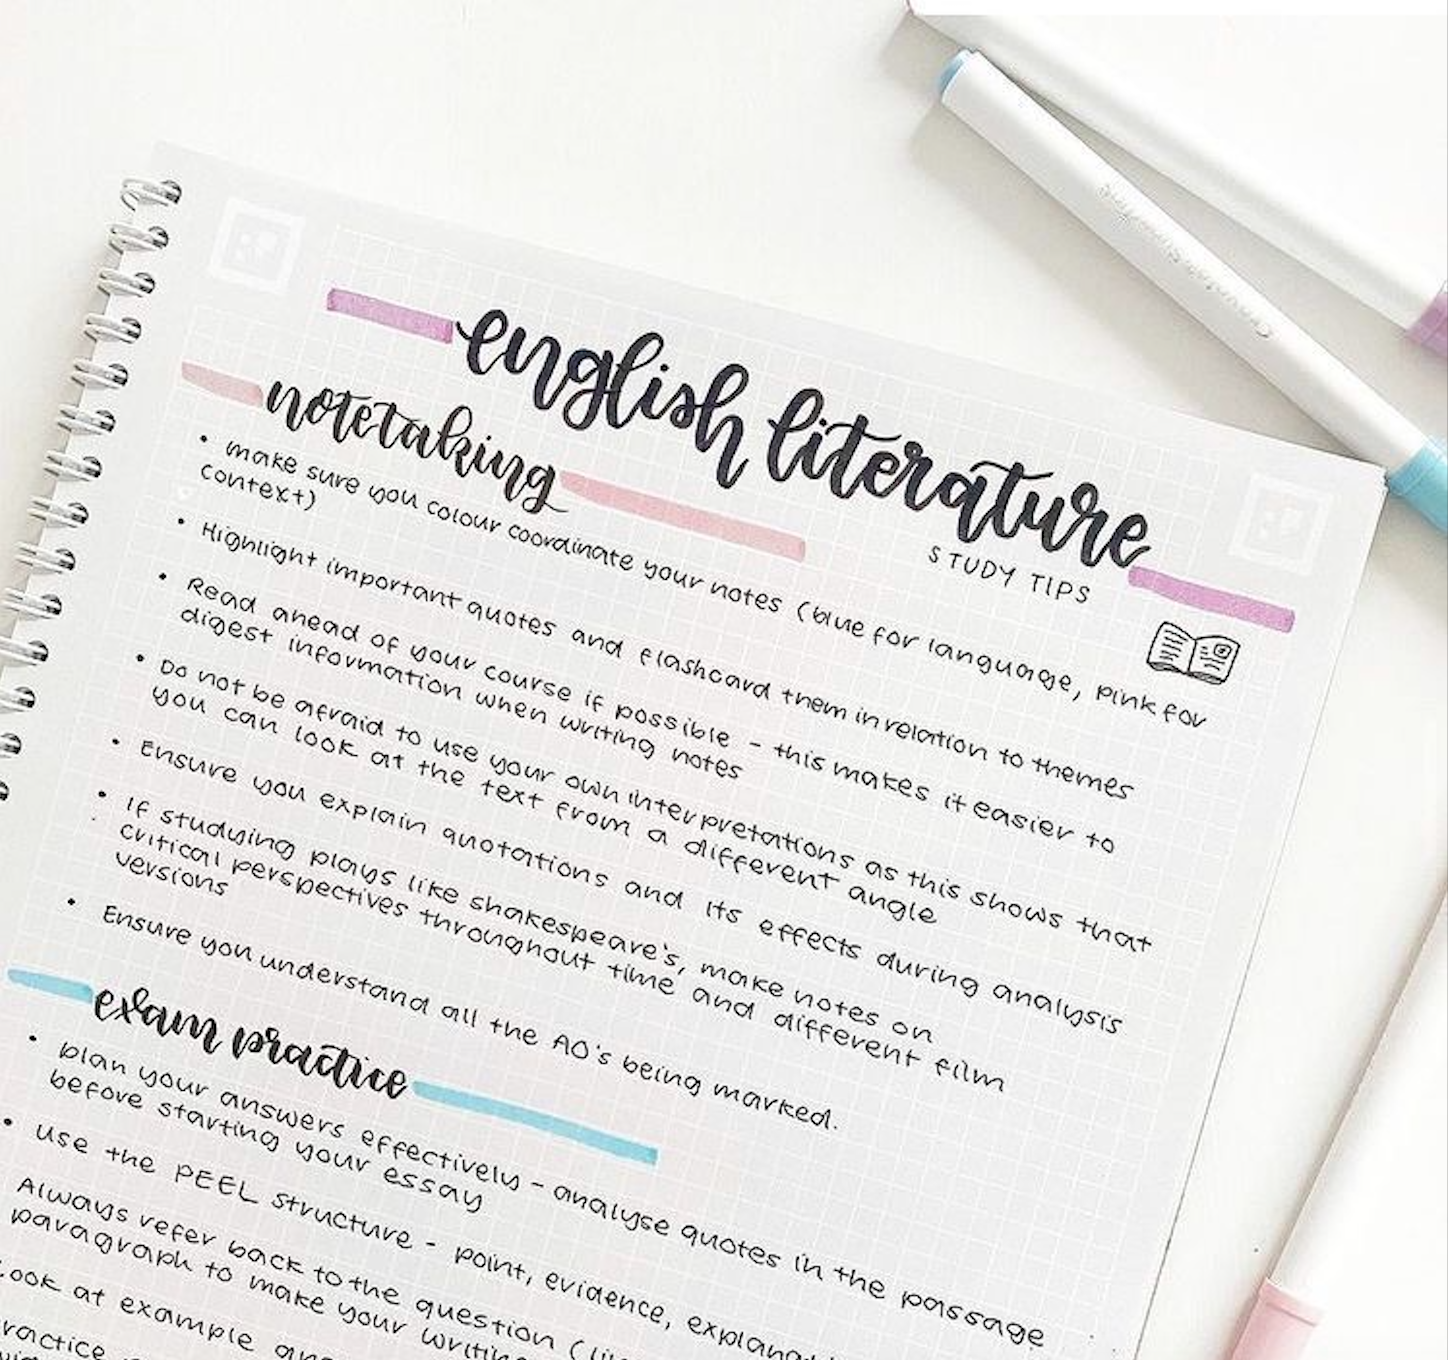 english literature
STUDY TIPS
notetaking
• make sure you colour coordinate your notes (blue for language, pink for
context)
• Highlight important quotes and flashcard them in relation to themes
• Read ahead of your course if possible - this makes it easier to
digest information when writing notes
• Do not be afraid to use your own interpretations as this shows that
you can look at the text from a different angle
• Ensure you explain quotations and its effects during analysis
• If studying plays like shakespeare's, make notes on
critical perspectives throughout time and different film
versions
• Ensure you understand all the AO's being marked.
exam practice
• plan your answers effectively - analyse quotes in the passage
before starting your essay
• Use the PEEL structure - point, evidence,
Always refer back to the question
paragraph to make your
Look at example